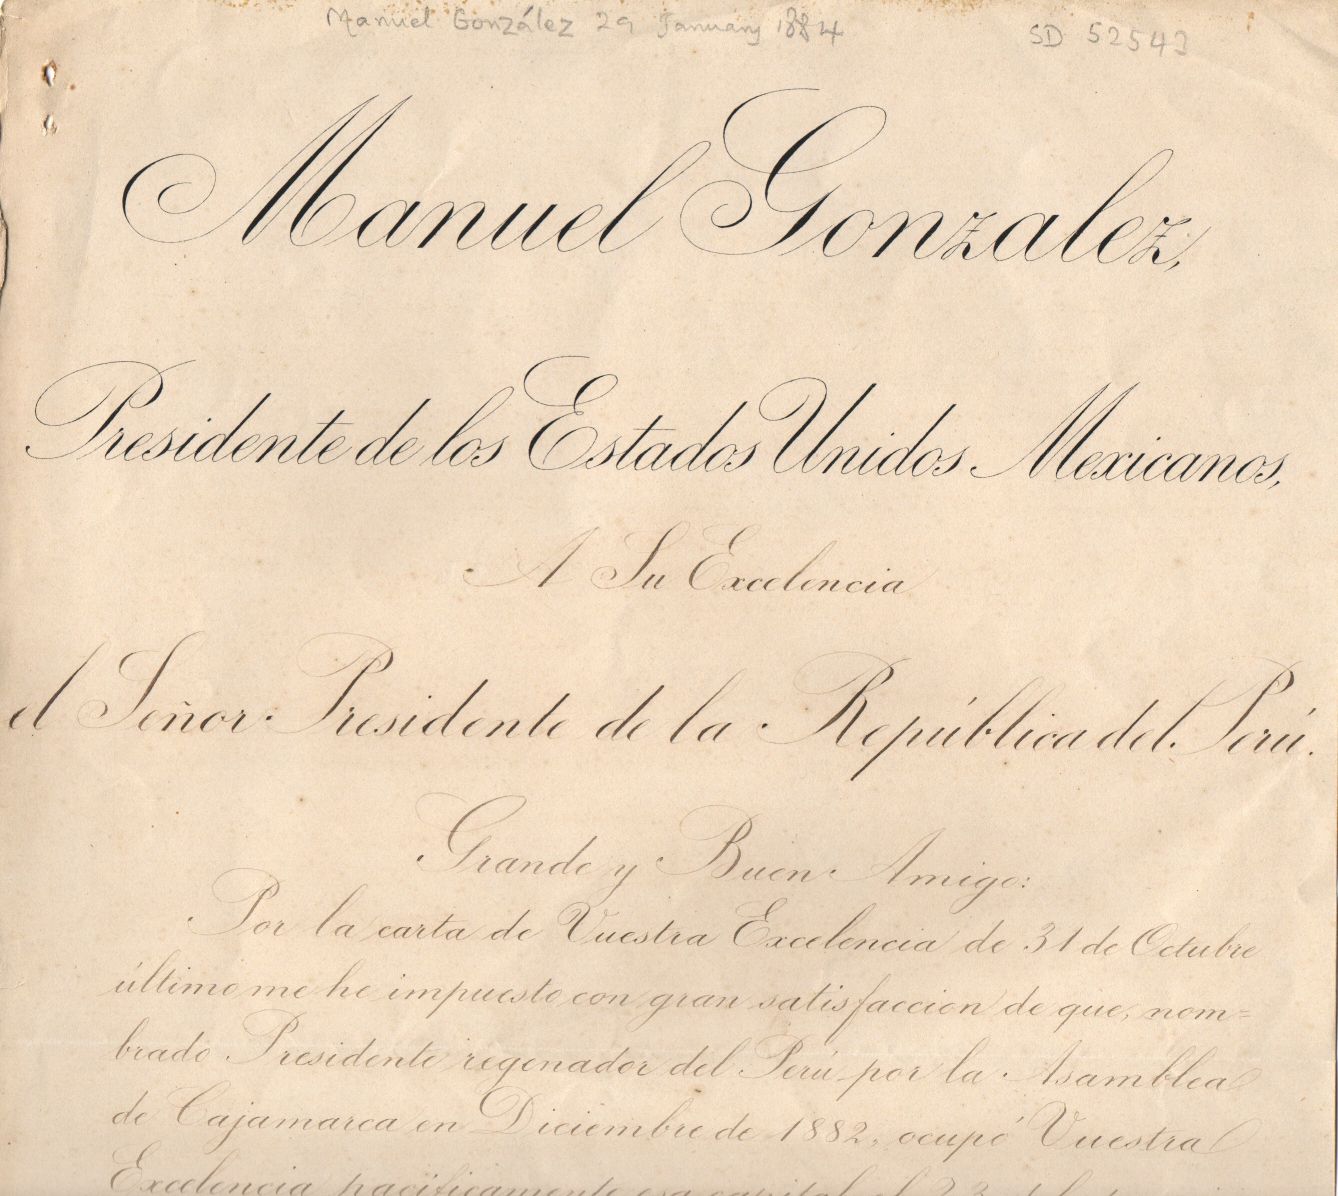 Manuel González 29 January 1884 SD 52543
Manuel Gonzalez,
Presidente de los Estados Unidos Mexicanos,
A Su Excelencia
el Señor Presidente de la República del Perú.
Grande y Buen Amigo:
Por la carta de Vuestra Excelencia de 31 de Octubre
último me he impuesto con gran satisfaccion de que, nom=
brado Presidente regenador del Perú por la Asamblea
de Cajamarca en Diciembre de 1882, ocupó Vuestra
Excelencia pacificamente esa capital el 23